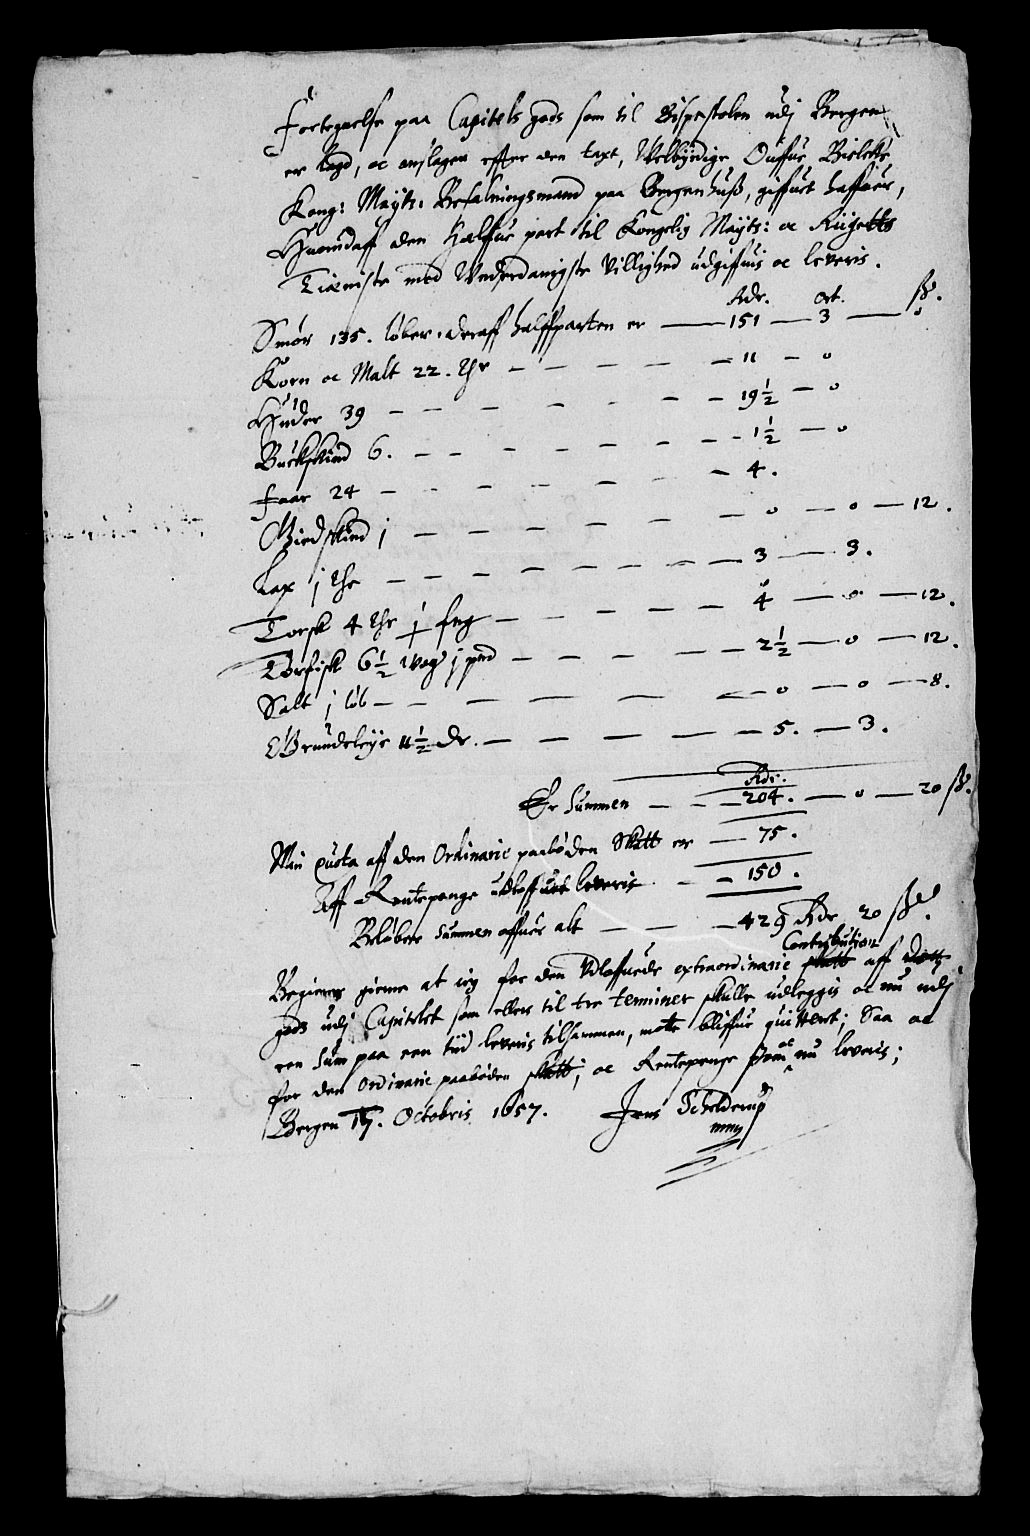 Fortegnelse paa Capitels gods som til Bispestolen udj Bergen
er lagd, oc anslagen effter den taxt, Welbyrdige Ouffue Bielcke
Kong: Mayts: Befalningsmand paa Bergenhuß, giffuet haffuer,
Huoraff den Halffue part til Kongelig Mayts: oc Riigetts
Tieniste med Underdanigste Villighed udgiffuis oc leveris.
Rdr. ort. ß.
Smør 135. løber, deraff halffparten er — 151 — 3 — 0
Korn oc Malt 22. thr — 11 — 0
Huder 39 — 19 1/2 — 0
Buckskind 6. — 1 1/2 — 0
Faar 24 — 4.
Giedskind j — 0 — 0 — 12.
Lax j thr — 3 — 3.
Torsk 4 thr — 4 — 0 — 12.
Tørfisk 6 1/2 wog j pnd — 2 1/2 — 0 — 12.
Salt j løb — 0 — 0 — 8.
Grundeleye 11 1/2 dr. — 5. — 3.
Rdr.
Er Summen — 204. — 0 — 20 ß.
Min quota aff den Ordinarie paabøden Skatt er — 75.
Aff Rentepenge leveris — 150.
Beløber Summen offuer alt — 429 Rdr 20 ß.
Contribution
Begierer gierne at ieg for den extraordinarie skatt aff dette
gods udj Capitelet som ellers til tre terminer skulle udleggis oc nu udj
een Sum paa een tiid leveris tilsammen, motte bliffue quitteret; Saa oc
for den Ordinarie paabøden skatt, oc Rentepenge som oc nu leveris;
Bergen 17. Octobris 1657. Jens Schelderup
mpp